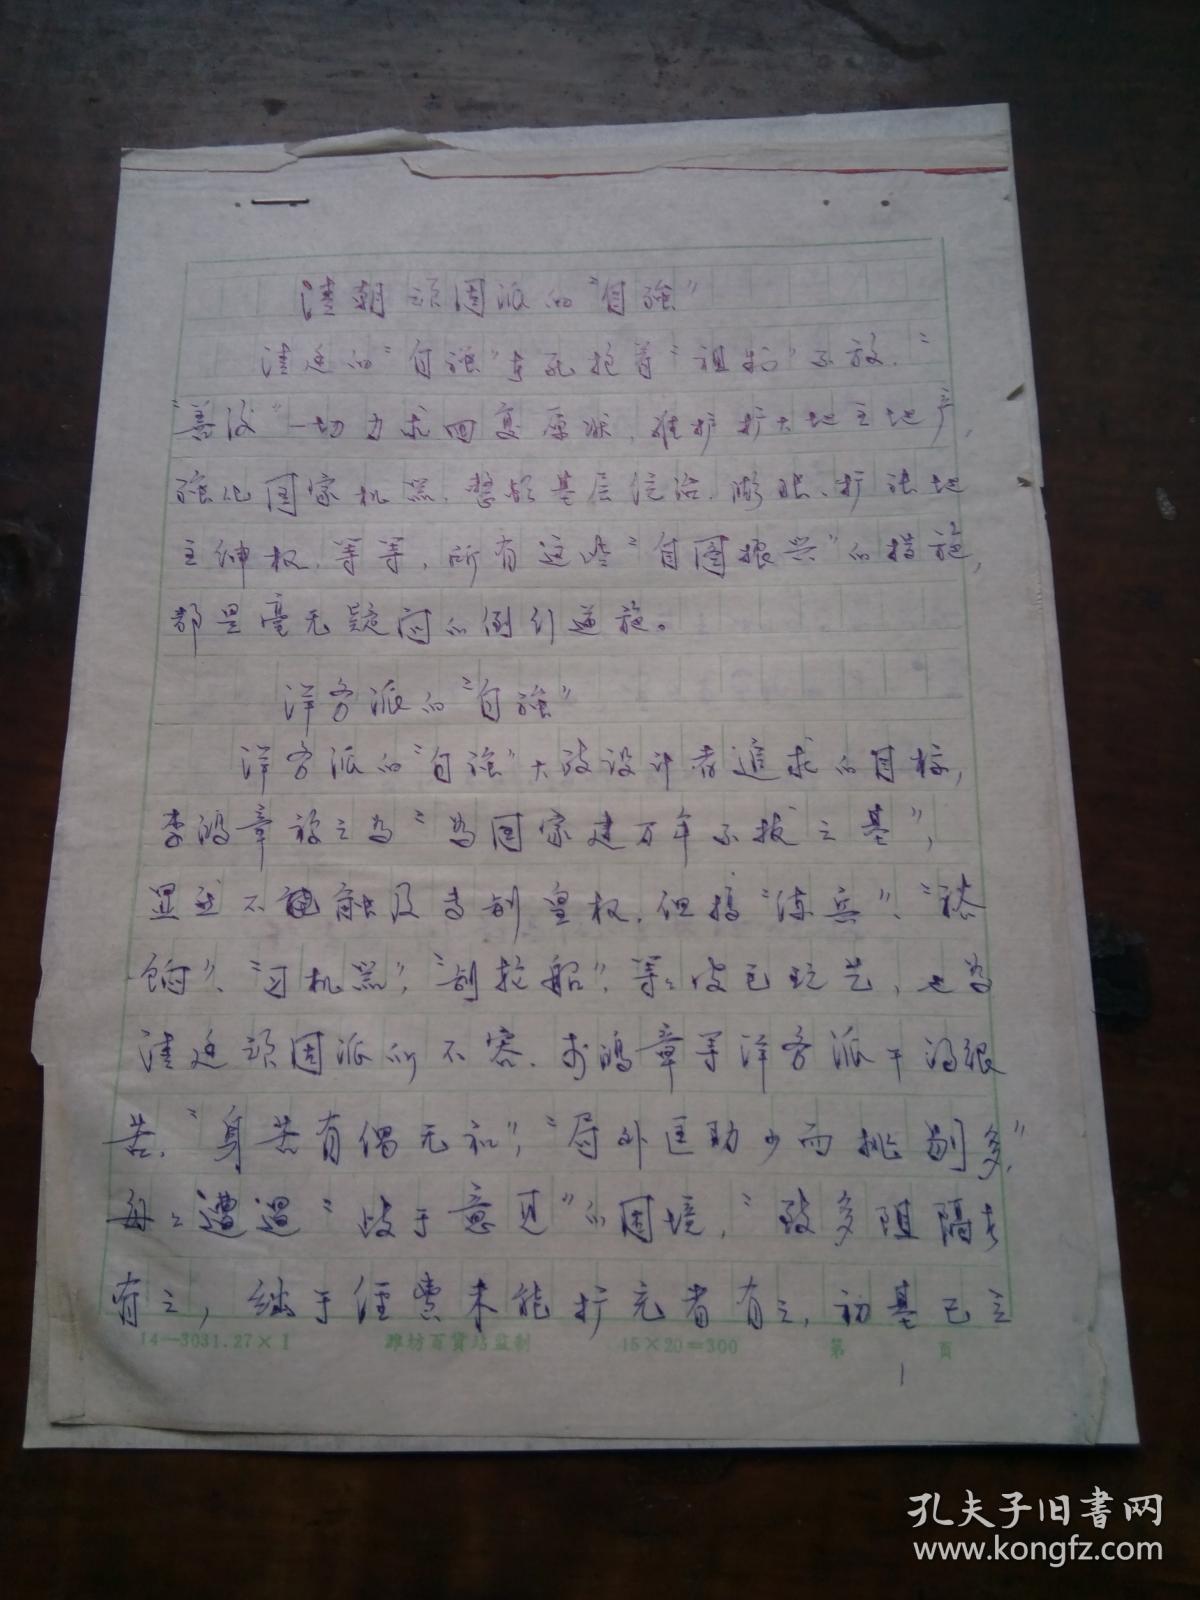 清朝顽固派的“自強”
清廷的“自強”专死抱着“祖制”不放．“
善后”一切力求回复原状，维护扩大地主地产，
強化国家机器．整顿基层统治．膨胀、扩张地
主绅权．等等，所有这些“自图振兴”的措施，
都是毫无疑问的倒行逆施。
洋务派的“自強”
洋务派的“自強”大致设计者追求的目标，
李鸿章议之为“为国家建万年不拔之基”，
显然不触及专制皇权．但搞“练兵”、“裕
饷”、“习机器”，“制轮船”，等々皮毛玩艺，也为
清廷顽固派所不容．李鸿章等洋务派干得很
苦．“身苦有偶无和”，“局外匡助少而挑剔多”，
每々遭遇“歧于意见”的困境，“致多阻隔者
有之，绌于经费未能扩充者有之，初基已立
14—3031.27×1 潍坊百货站监制 15×20=300 第 页
1
孔夫子旧书网
www.kongfz.com